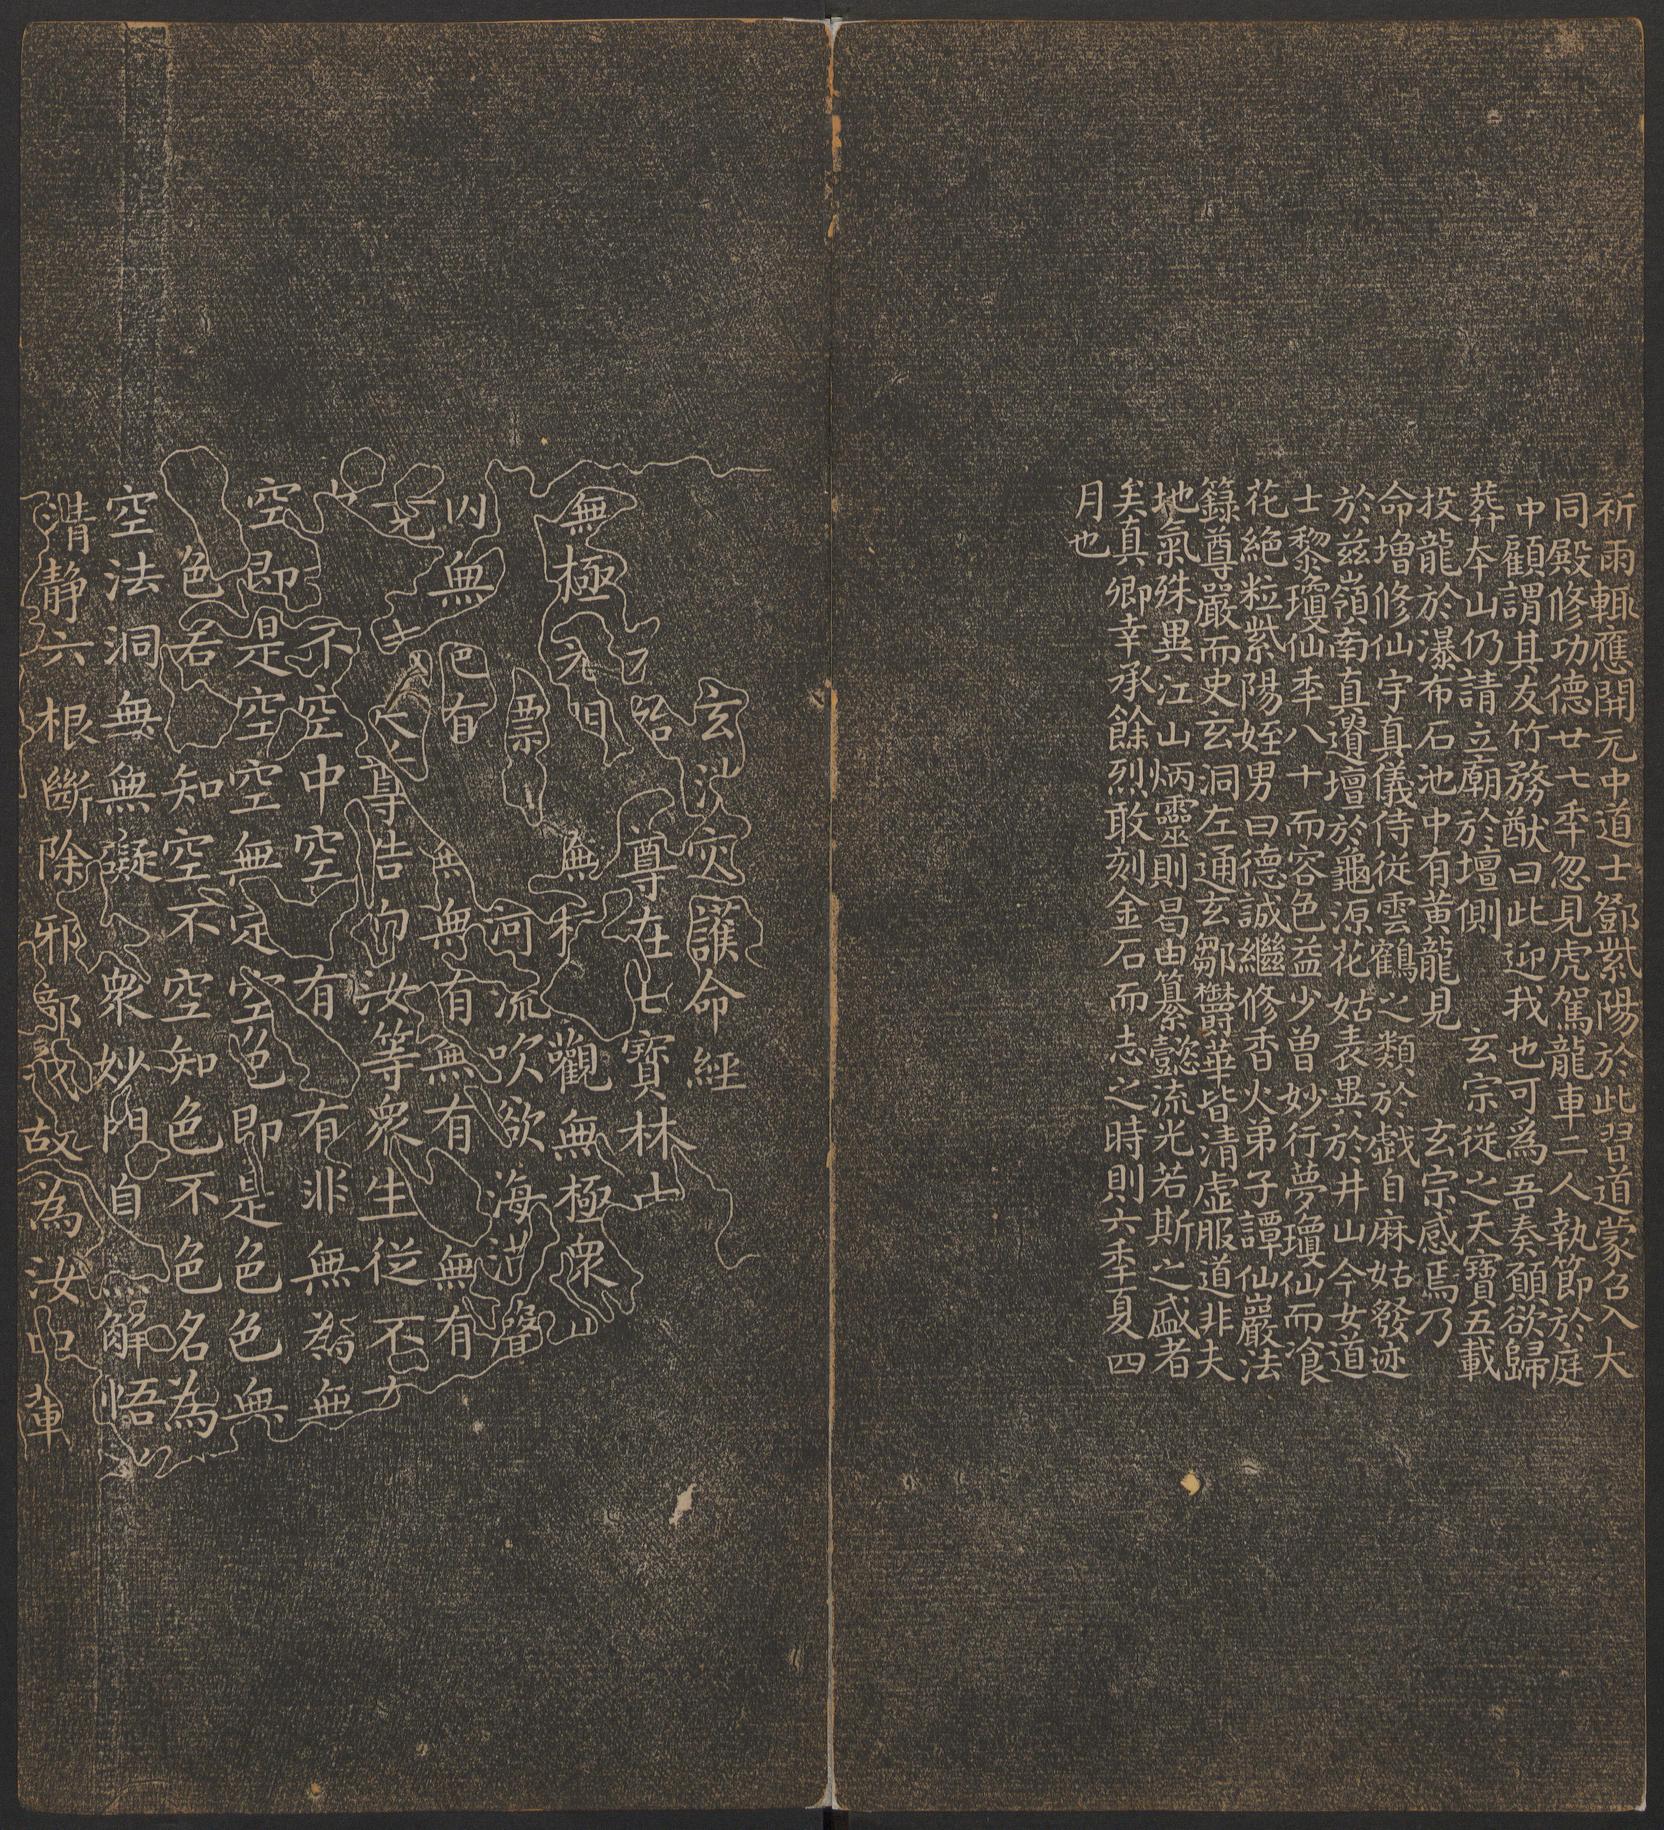 祈雨輒應開元中道士鄧紫陽於此習道蒙召入大
同殿修功德廿七秊忽見虎駕龍車二人執節於庭
中顧謂其友竹務猷曰此迎我也可為吾奏願欲歸
葬本山仍請立廟於壇側玄宗從之天寶五載
投龍於瀑布石池中有黃龍見玄宗感焉乃
命增修仙宇真儀侍從雲鶴之類於戲自麻姑發迹
於茲嶺南真遺壇於龜源花姑表異於井山今女道
士黎瓊仙秊八十而容色益少曾妙行夢瓊仙而飡
花絕粒紫陽姪男曰德誠繼修香火弟子譚仙巖法
籙尊嚴而史玄洞左通玄鄒欝華皆清虛服道非夫
地氣殊異江山炳靈則曷由纂懿流光若斯之盛者
矣真卿幸承餘烈敢刻金石而志之時則六秊夏四
月也
玄 災護命經
尊在七寶林山
無極 無 觀無極眾
票 河流吹欲海 聲
無 有 無無有無有無有
尊告 汝等眾生從不
不空中空 有 有非無為無
空即是空空無定空色即是色色無
色若知空不空知色不色名為
空法洞無無礙眾妙門自 解悟
清静六根斷除邪 故為汝 軰